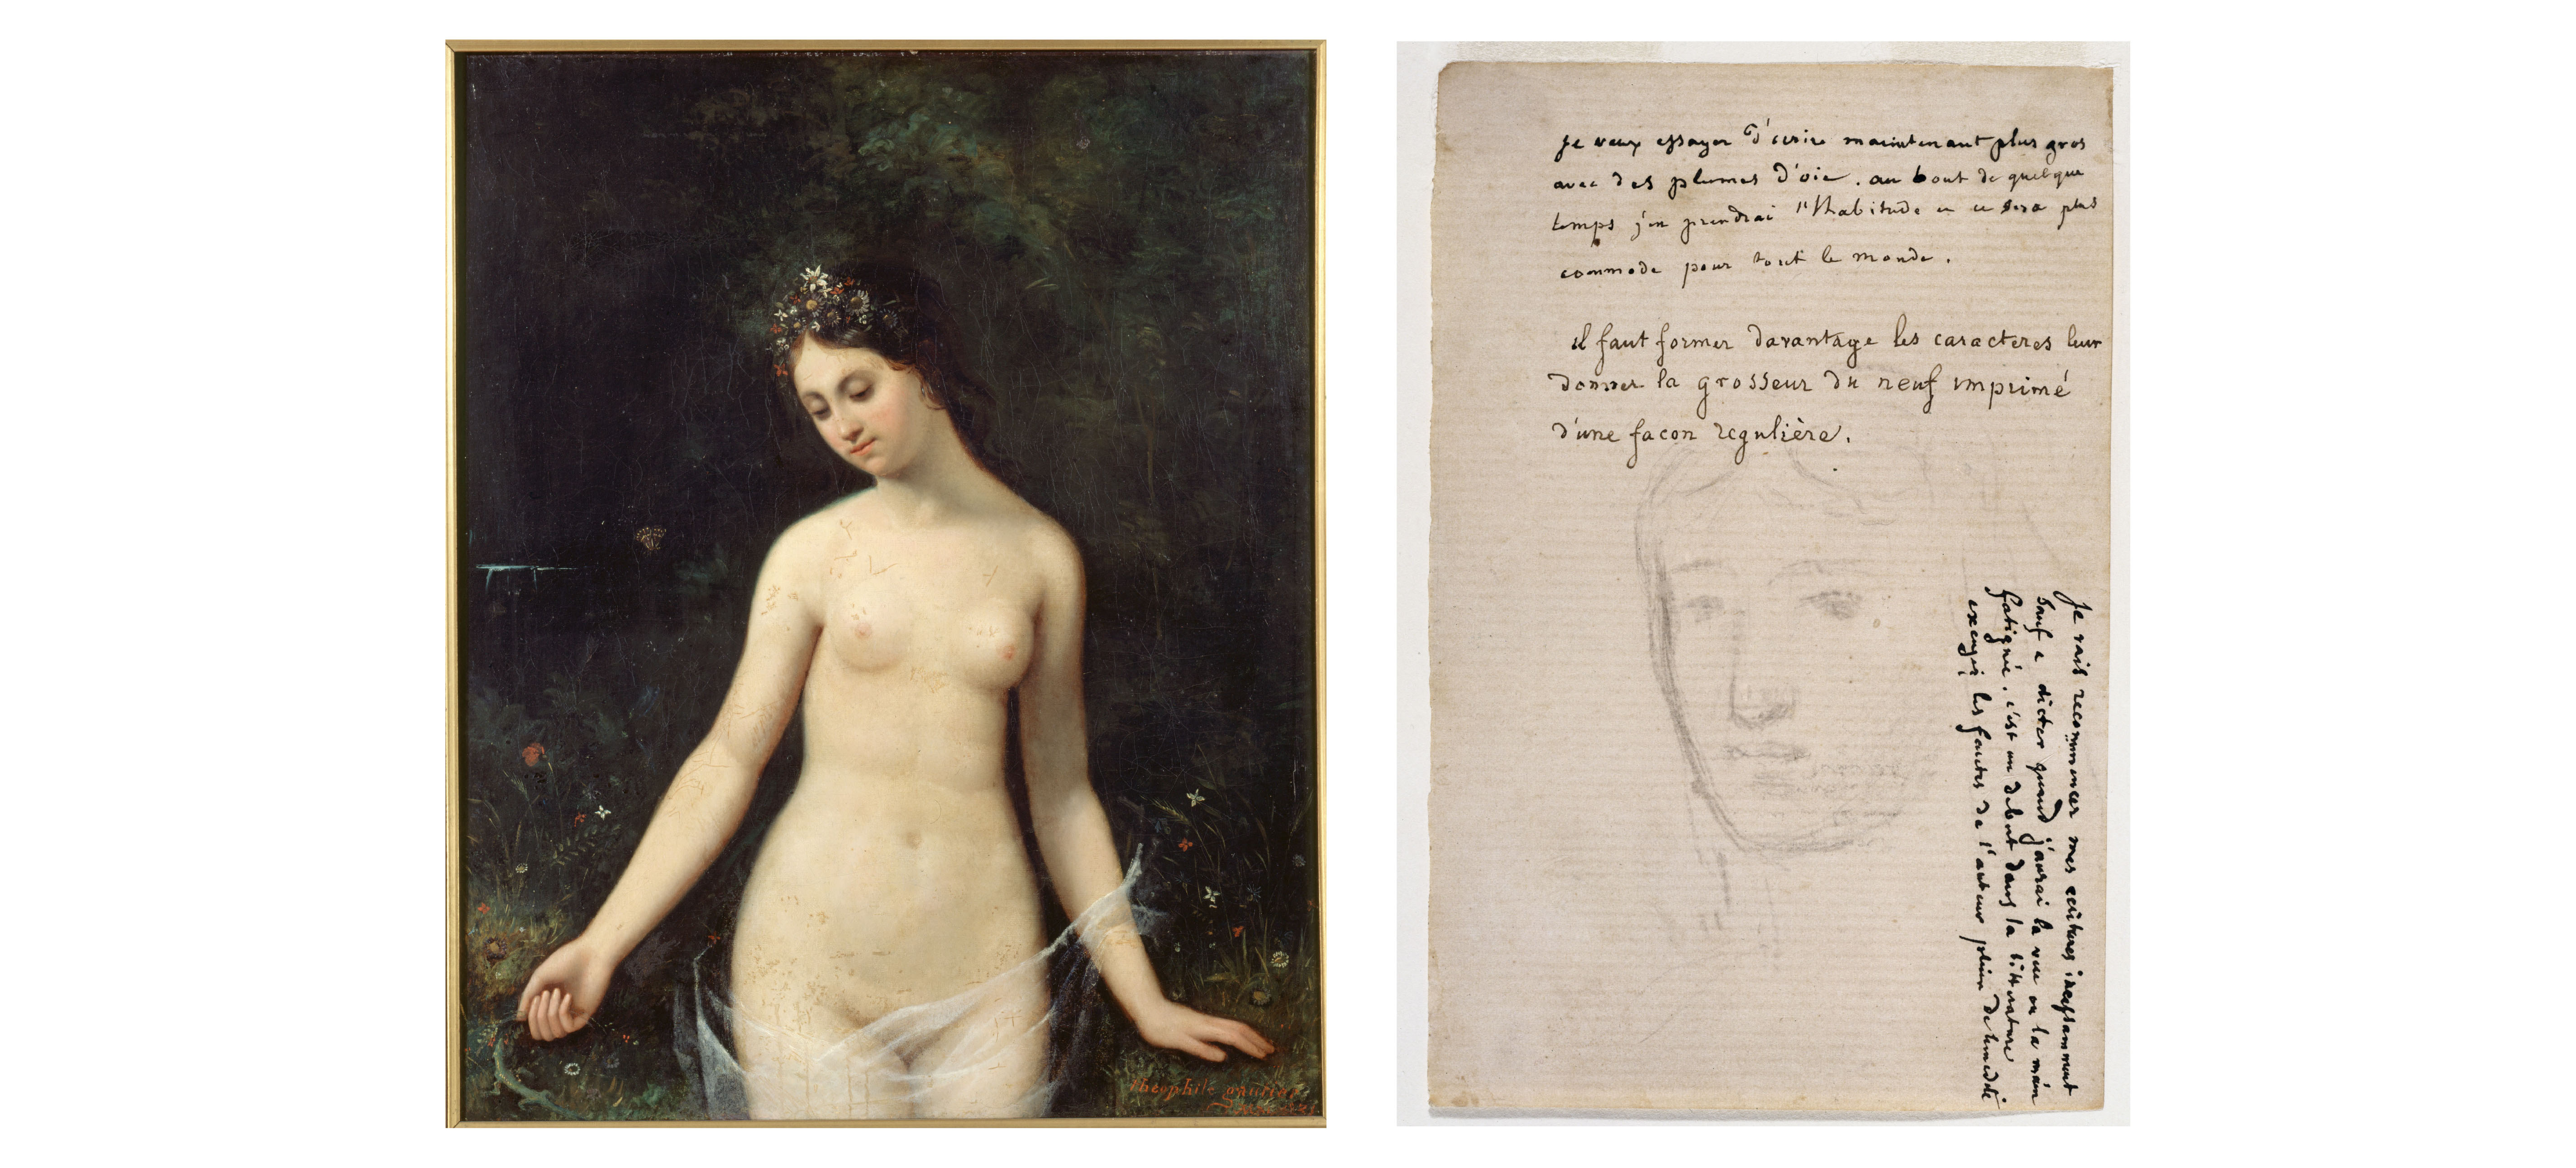 théophile gautier
je veux essayer d'ecrire maintenant plus gros
avec des plumes d'oie. au bout de quelque
temps j'en prendrai l'habitude et ce sera plus
commode pour tout le monde.
il faut former davantage les caracteres leur
donner la grosseur du neuf imprimé
d'une facon regulière.
Je vais recommencer mes ecritures incessamment
sauf a dicter quand j'aurai la vue ou la main
fatiguée. c'est un debut dans la litterature
excusez les fautes de l'auteur plein de timidité